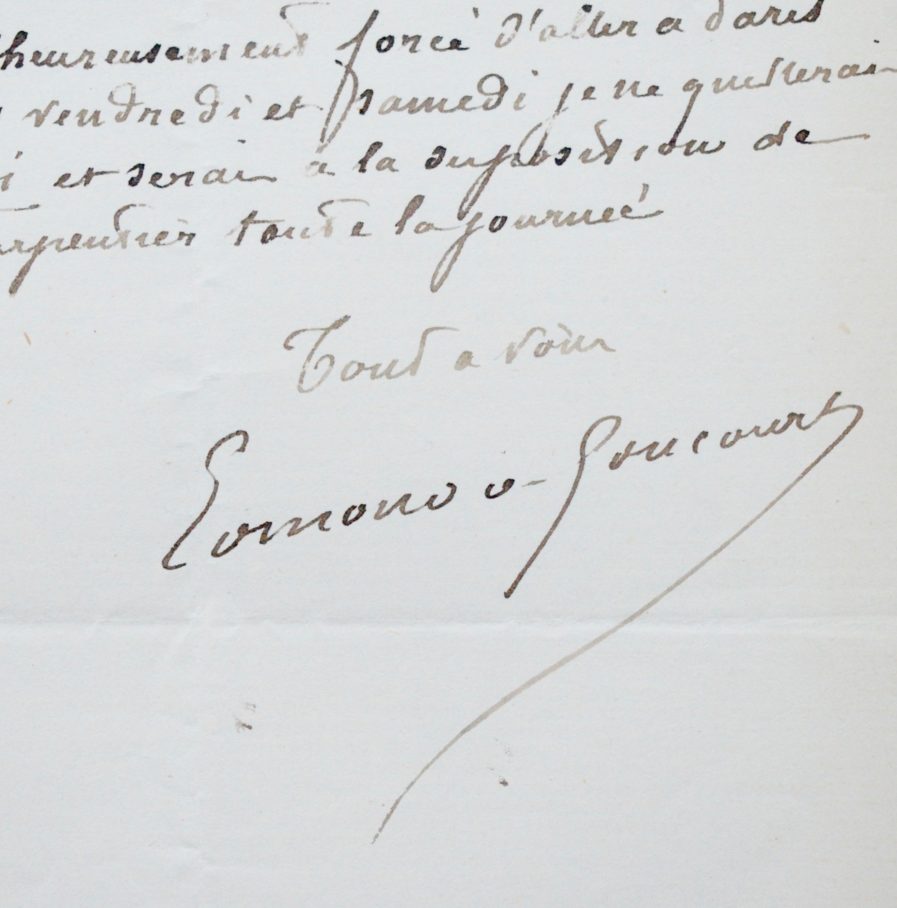 heureusement forcé d'aller a Paris
vendredi et samedi je ne quitterai
i et serai à la disposition de
rpentier toute la journeé
Tout a vous
Edmond de Goncourt